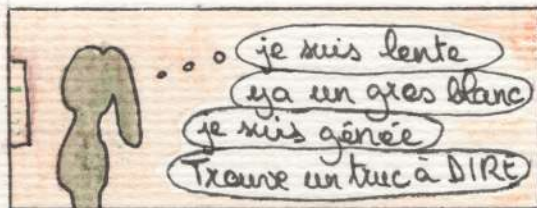 je suis lente
ya un gros blanc
je suis gênée
Trouve un truc à DIRE